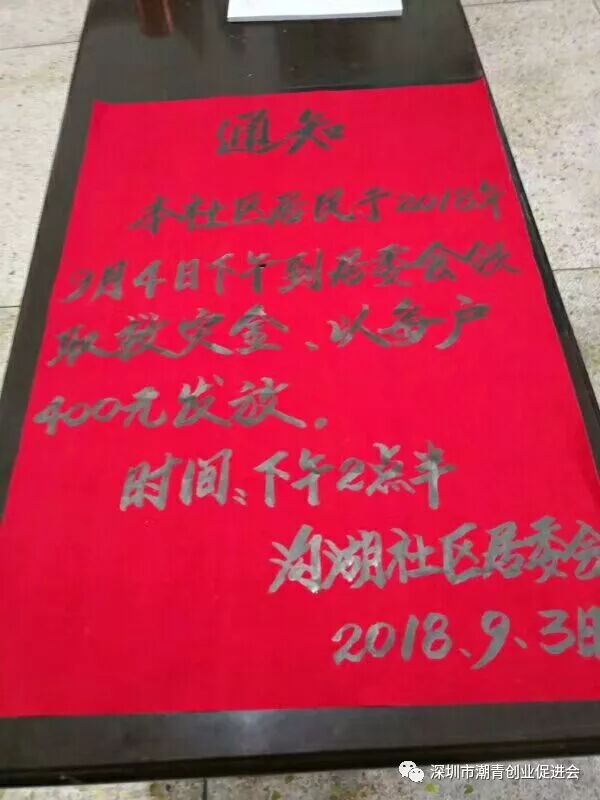 通知
本社区居民于2018年
9月4日下午到居委会领
取救灾金、以每户
400元发放。
时间:下午2点半
沟湖社区居委会
2018、9、3日
深圳市潮青创业促进会